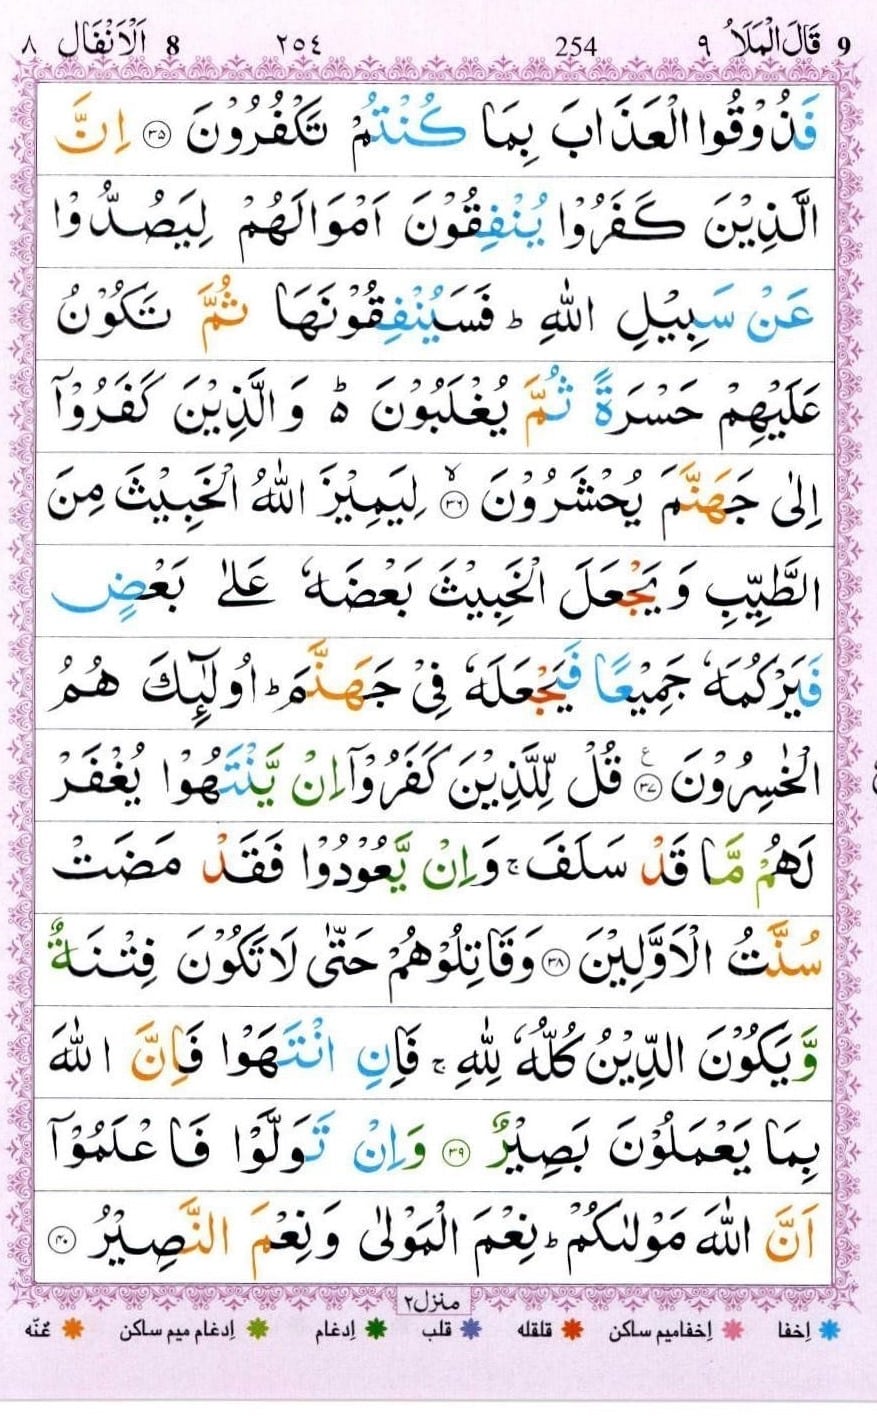 9 قَالَ الْمَلَاُ ٩ 254 ٢٥٤ 8 اَلْاَنْفَال ٨
فَذُوْقُوا الْعَذَابَ بِمَا كُنْتُمْ تَكْفُرُوْنَ ۝٣٥ اِنَّ
الَّذِيْنَ كَفَرُوْا يُنْفِقُوْنَ اَمْوَالَهُمْ لِيَصُدُّوْا
عَنْ سَبِيْلِ اللّٰهِ ؕ فَسَيُنْفِقُوْنَهَا ثُمَّ تَكُوْنُ
عَلَيْهِمْ حَسْرَةً ثُمَّ يُغْلَبُوْنَ ۬ؕ وَالَّذِيْنَ كَفَرُوْۤا
اِلٰى جَهَنَّمَ يُحْشَرُوْنَ ۙ۝٣٦ لِيَمِيْزَ اللّٰهُ الْخَبِيْثَ مِنَ
الطَّيِّبِ وَيَجْعَلَ الْخَبِيْثَ بَعْضَهٗ عَلٰى بَعْضٍ
فَيَرْكُمَهٗ جَمِيْعًا فَيَجْعَلَهٗ فِيْ جَهَنَّمَ ؕ اُولٰٓئِكَ هُمُ
الْخٰسِرُوْنَ ۝٣٧ع قُلْ لِّلَّذِيْنَ كَفَرُوْۤا اِنْ يَّنْتَهُوْا يُغْفَرْ
لَهُمْ مَّا قَدْ سَلَفَ ۚ وَاِنْ يَّعُوْدُوْا فَقَدْ مَضَتْ
سُنَّتُ الْاَوَّلِيْنَ ۝٣٨ وَقَاتِلُوْهُمْ حَتّٰى لَا تَكُوْنَ فِتْنَةٌ
وَّيَكُوْنَ الدِّيْنُ كُلُّهٗ لِلّٰهِ ۚ فَاِنِ انْتَهَوْا فَاِنَّ اللّٰهَ
بِمَا يَعْمَلُوْنَ بَصِيْرٌ ۝٣٩ وَاِنْ تَوَلَّوْا فَاعْلَمُوْۤا
اَنَّ اللّٰهَ مَوْلٰىكُمْ ؕ نِعْمَ الْمَوْلٰى وَنِعْمَ النَّصِيْرُ ۝٤٠
منزل٢
اِخفا اِخفامیم ساکن قلقله قلب اِدغام اِدغام میم ساکن غنّه